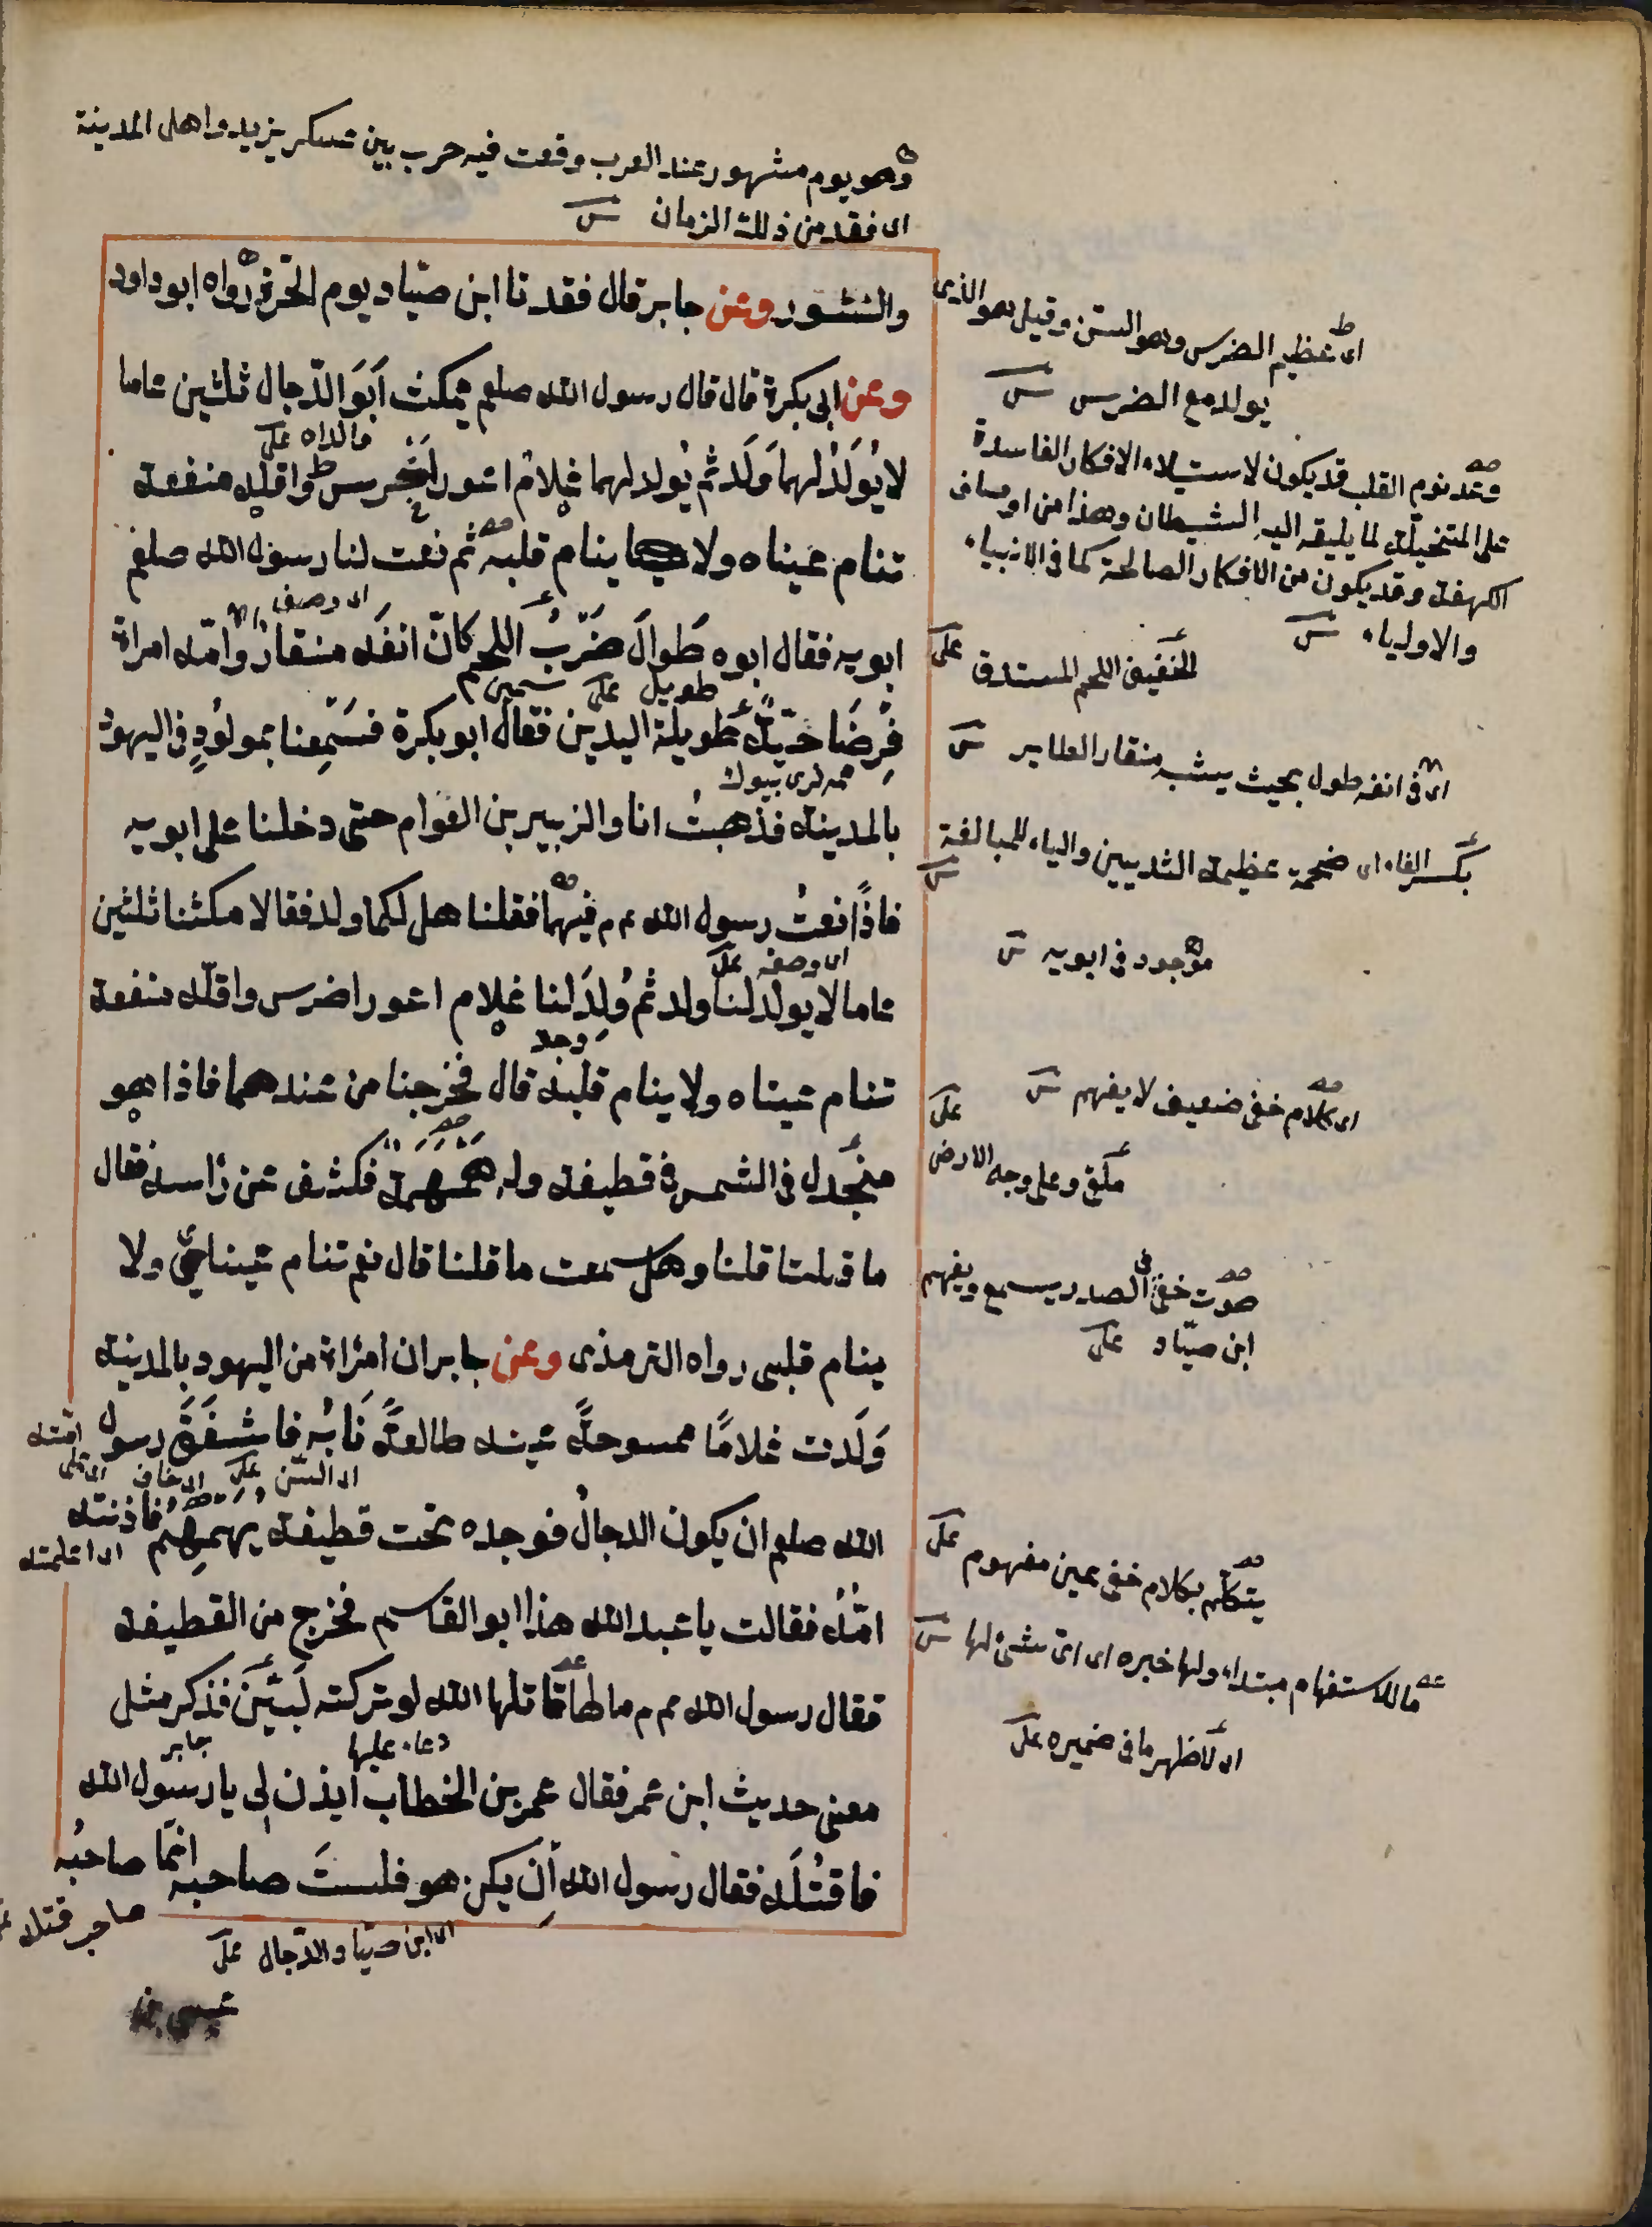 وهو يوم مشهور عند العرب وقعت فيه حرب بين عسكر يزيد واهل المدينة
اى فقد من ذلك الزمان
والنشور وعن جابر قال فقدنا ابن صيّاد يوم الحرّة رواه ابو داود
وعن ابى بكرة قال قال رسول الله صلعم يمكث اَبَوَا الدّجال ثلثين عاما
والداه
لا يُولَدُ لهما وَلَد ثم يُولد لهما غلامٌ اعور اضرس واقله منفعة
تنام عيناه ولا ينام قلبه ثم نعت لنا رسول الله صلعم
اى وصف
ابويه فقال ابوه طَوالَ ضَرْبُ اللحم كانّ انفَه منقارٌ وامّه امراة
طويل
فِرضَاخيّة طويلة اليدين فقال ابو بكرة فسَمِعنا بمولُودٍ فى اليهود
بالمدينة فذهبتُ انا والزبير بن العوام حتى دخلنا على ابويه
فاذا نعتُ رسول الله عم فيهما فقلنا هل لكما ولد فقالا مكثنا ثلثين
اى وصفه
عاما لا يولد لنا ولد ثم وُلِدَ لنا غلام اعور اضرس واقلّه منفعة
تنام عيناه ولا ينام قلبه قال فخرجنا من عندهما فاذا هو
منجَدل فى الشمس فى قطيفة وله هَمْهَمَة فكشف عن رأسه فقال
ما قلتما قلنا وهل سمعت ما قلنا قال نعم تنام عيناى ولا
ينام قلبى رواه الترمذى وعن جابر ان امرأة من اليهود بالمدينة
وَلَدت غلامًا ممسوحةً عينه طالعةً نَابُه فاشفَقَ رسول
اى السّن اى خاف
الله صلعم ان يكون الدجالُ فوجده تحت قطيفة يهَمهِمُ فاذنته
اى اعلمته
امّهُ فقالت يا عبد الله هذا ابو القاسم فخرج من القطيفة
فقال رسول الله عم ما لها قاتلها الله لو تركته لَبَيَّنَ فذكر مثل
دعاء عليها جابر
معنى حديث ابن عمر فقال عمر بن الخطاب ايذن لى يا رسول الله
فاقتُلَه فقال رسول الله اِن يكن هو فلستَ صاحبه انّما صاحبُه
اى ابن صيّاد الدّجال
صاحب قتله
عيسى بن
اى عظيم الضرس وهو السنّ وقيل هو الذى
يولد مع الضرس
وعند نوم القلب قد يكون لاستيلاء الافكار الفاسدة
على المتخيّلة لما يلقيه اليه الشيطان وهذا من اوصاف
الكهنة وقد يكون من الافكار الصالحة كما فى الانبياء
والاولياء
الخفيف اللحم المستدق
اى فى انفه طول بحيث يشبه منقار الطاير
بكسر الفاء اى ضخمة عظيمة الثديين والياء للمبالغة
موجود فى ابويه
اى كلام خفى ضعيف لا يفهم
ملقى على وجه الارض
صوت خفى فى الصدر يسمع ويفهم
ابن صيّاد
يتكلّم بكلام خفى غير مفهوم
ما للاستفهام مبتداء ولها خبره اى اىّ شئ لها
اى لاظهر ما فى ضميره